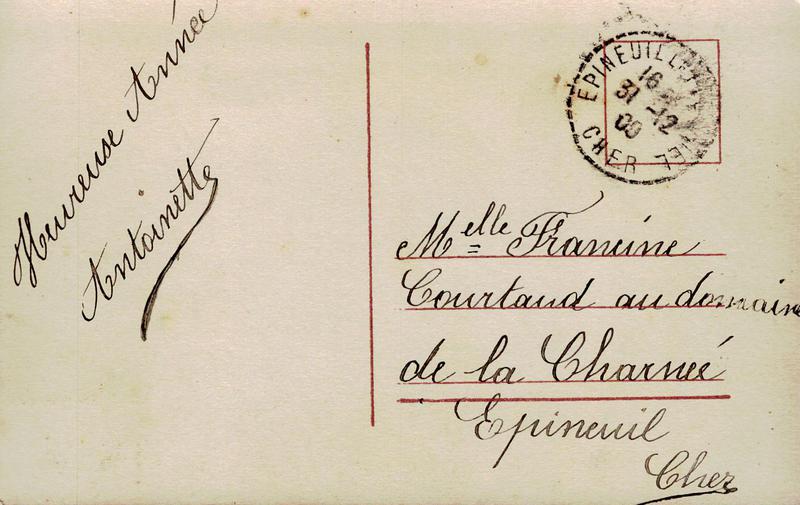 Heureuse Année
Antoinette
EPINEUIL-LE-FLEURIEL
16
31 -12
00
CHER
Melle Francine
Courtaud au domaine
de la Charnée
Epineuil
Cher